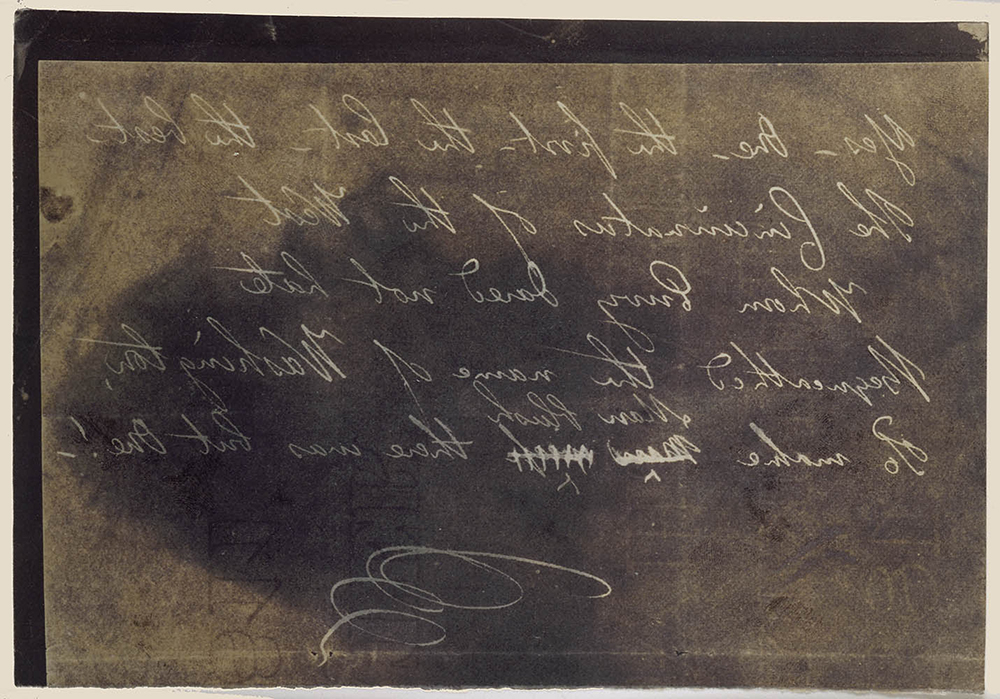 Yes – One – the first – the last – the best
The Cincinnatus of the West
Whom Envy dared not hate
Bequeathed the name of Washington,
Man blush
To make there was but One! –